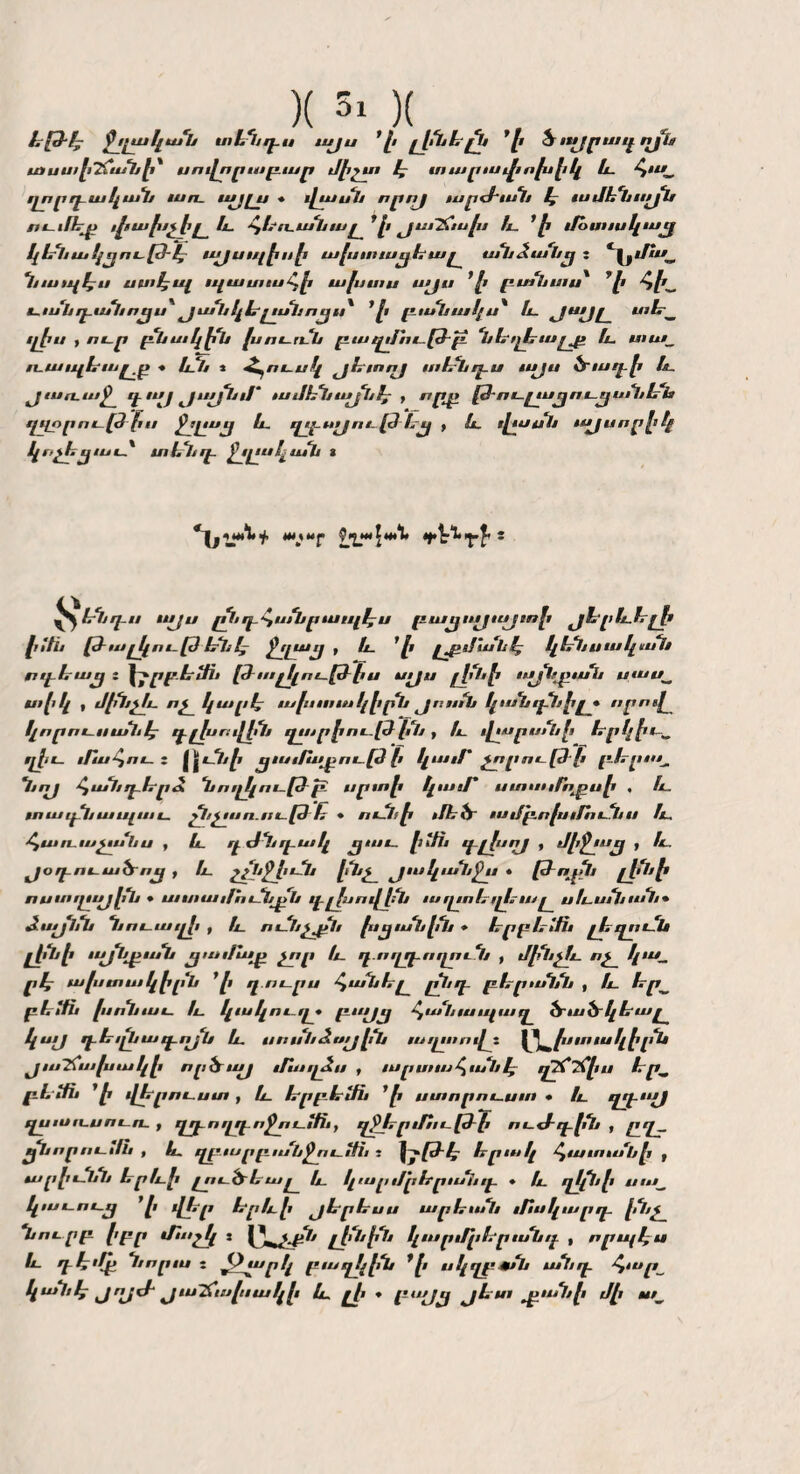 )( 31 )(
եթէ ջղական տենդս այս ՚ի լինելն ՚ի ծայրագոյն
աստիճանի՝ սովորաբար միշտ է տարափոխիկ և հա_
ղորդական առ այլս • վասն որոյ արժան է ամենայն
ումեք փախչիլ և հեռանալ ՚ի յաճախ և ՚ի մօտակայ
կենակցութէ այսպիսի ախտացեալ անձանց ։ Նմա_
նապէս ստէպ պատահի ախտս այս ՚ի բանտս՝ ՚ի հի_
ւանդանոցս՝ յանկելանոցս՝ ՚ի բանակս՝ և յայլ տե_
ղիս , ուր բնակին խուռն բազմութք նեղեալք և տա_
ռապեալք • ևն ։ Հուսկ յետոյ տենդս այս ծագի և
յառաջ գայ յայնմ՝ ամենայնէ , որք թուլացուցանեն
զզօրութիս ջղաց և զգայութեց , և վասն այսորիկ
կոչեցաւ՝ տենդ ջղական ։
Նշանք այսր ջղական տենդի ։
Տենդս այս ընդհանրապէս բացայայտի յերևելի
իմն թալկութենէ ջղաց , և ՚ի լքմանէ կենսական
ոգեաց ։ Երբեմն թալկութիս այս լինի այնքան սաս_
տիկ , մինչև ոչ կարէ ախտակիրն յոտն կանգնիլ• որով
կորուսանէ գլխովին զարիութին , և վարանի երկիւ_
ղիւ մահու ։ Ունի ցամաքութի կամ՝ չորութի բերա_
նոյ հանդերձ նողկութբ սրտի կամ՝ ստամոքսի . և
տագնապաւ շնչառութե • ունի մեծ ամբոխմունս և
հառաչանս , և գժնդակ ցաւ իմն գլխոյ , միջաց , և
յօդուածոց , և չնչին ինչ յականջս • թոքն լինի
ոստղային • ատամունքն գլխովին աղտեղեալ սևանան•
ձայնն նուաղի , և ունչքն խցանին • երբեմն լեզուն
լինի այնքան ցամաք չոր և դողդողուն , մինչև ոչ կա_
րէ ախտակիրն ՚ի դուրս հանել ընդ բերանն , և եր_
բեմն խոնաւ և կակուղ• բայց հանապազ ծածկեալ
կայ գեղնագոյն և սոսնձային աղտով։ Ախտակիրն
յաճախակի ործայ մաղձս , արտահանէ զճճիս եր_
բեմն ՚ի վերուստ , և երբեմն ՚ի ստորուստ • և զգայ
զսառսուռ , զդողդոջումն, զջերմութի ուժգին , ըղ_
ցնորումն , և զբարբանջումն ։ Եթէ երակ հատանի ,
արիւնն երևի լուծեալ և կարմրերանգ • և զկնի սա_
կաւուց ՚ի վեր երևի յերեսս արեան մսկարդ ինչ
նուրբ իբր մաշկ ։ Աչքն լինին կարմրերանգ , որպէս
և դէմք նորա ։ Զարկ բազկին ՚ի սկզբան անդ հար_
կանէ յոյժ յաճախակի և լի • բայց յետ քանի մի ա_